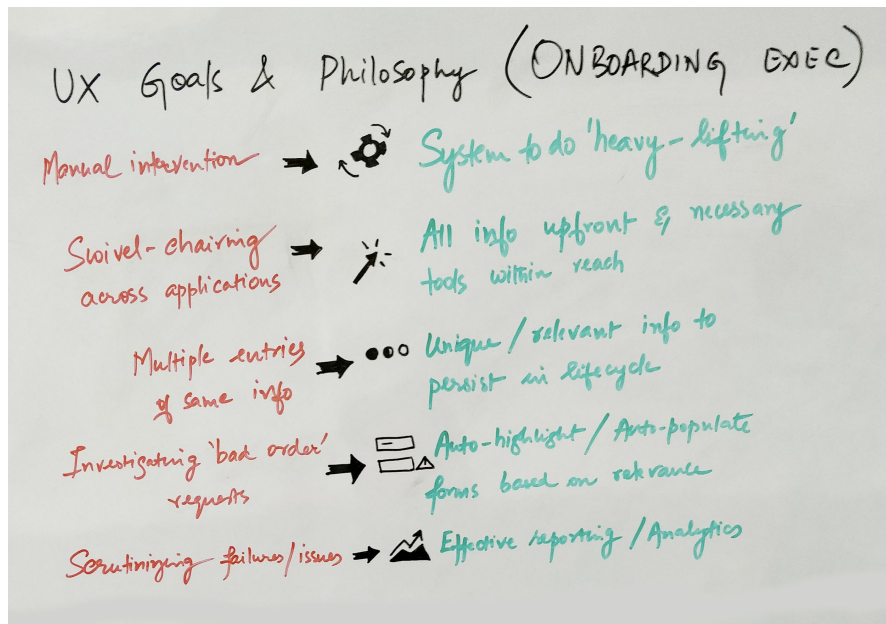 UX Goals & Philosophy (ONBOARDING EXEC)
Manual intervention
System to do 'heavy-lifting'
Swivel-chairing
across applications
All info upfront & necessary
tools within reach
Multiple entries
of same info
Unique / relevant info to
persist in lifecycle
Investigating 'bad order'
requests
Auto-highlight / Auto-populate
forms based on relevance
Scrutinizing failures/issues
Effective reporting / Analytics